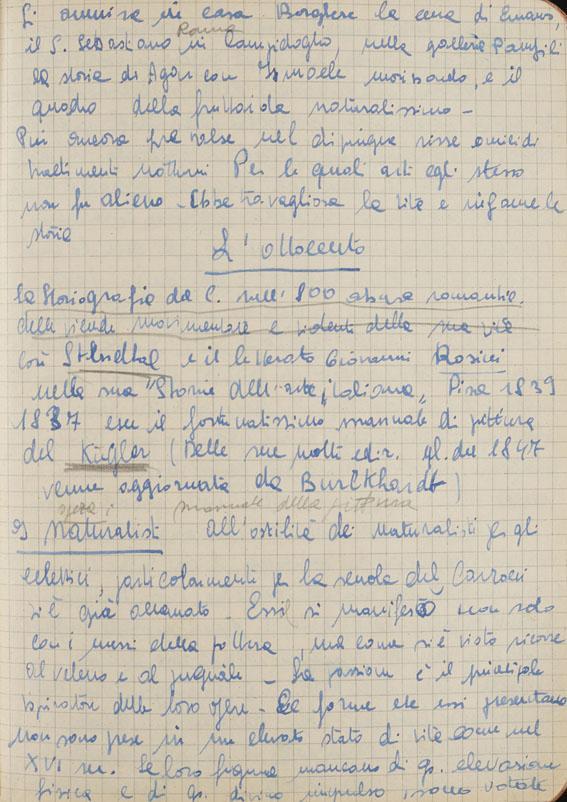 Si ammira in casa Borghese la cena di Emaus,
il S. Sebastiano in Campidoglio, nella galleria Panfili
Roma
la storia di Agar con Ismaele moribondo, e il
quadro della fruttaiola naturalissimo -
Più ancora prevalse nel dipingere risse omicidi
tradimenti notturni Per le quali arti egli stesso
non fu alieno - Ebbe travagliosa la vita e infame la
storia
L'ottocento
La storiografia del C. nell'800 abusa romantic.
delle vicende movimentate e violenti della sua vita
così Stendhal e il letterato Giovanni Rosini
nella sua "Storia dell'arte italiana" Pisa 1839
1837 esce il fortunatissimo manuale di pittura
del Kugler (Delle sue molti ediz. ql. del 1847
venne aggiornata da Burckhardt)
manuale della pittura
Naturalisti all'ostilità dei Naturalisti per gli
eclettici, particolarmente per la scuola dei Carracci
si è già accennato - Essi si manifestò non solo
con i mezzi della pittura, ma come si è visto ricorse
al veleno e al pugnale - La passione è il principale
ispiratore delle loro opere - Le forme che essi presentano
non sono prese in un elevato stato di vita come nel
XVI sec. Le loro figure mancano di q. elevazione
fisica e di q. divino impulso, sono votate